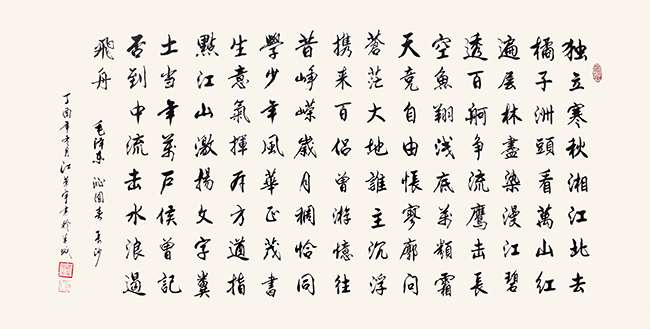 独立寒秋湘江北去
橘子洲頭看萬山紅
遍层林盡染漫江碧
透百舸争流鷹击長
空魚翔浅底萬類霜
天竞自由悵寥廓问
蒼茫大地誰主沉浮
携来百侣曾游憶往
昔峥嵘歲月稠恰同
學少年風華正茂書
生意氣揮斥方遒指
點江山激揚文字糞
土当年萬户侯曾記
否到中流击水浪遏
飛舟
毛泽东 沁园春 長沙
丁酉年